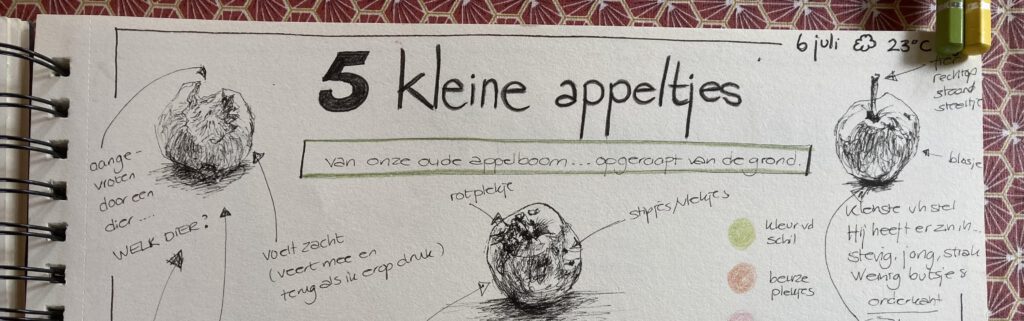 6 juli 23°C
5 kleine appeltjes
van onze oude appelboom... opgeraapt van de grond.
aange-
vroten
door een
dier....
WELK DIER?
voelt zacht
(veert mee en
terug als ik erop druk)
rotplekje
stipjes/vlekjes
kleur vd
schil
beurze
plekjes
fier
rechtop
staand
steeltje
blosje
kleinste vh stel
Hij heeft er zin in...
stevig, jong, strak
Weinig butsjes
onderkant